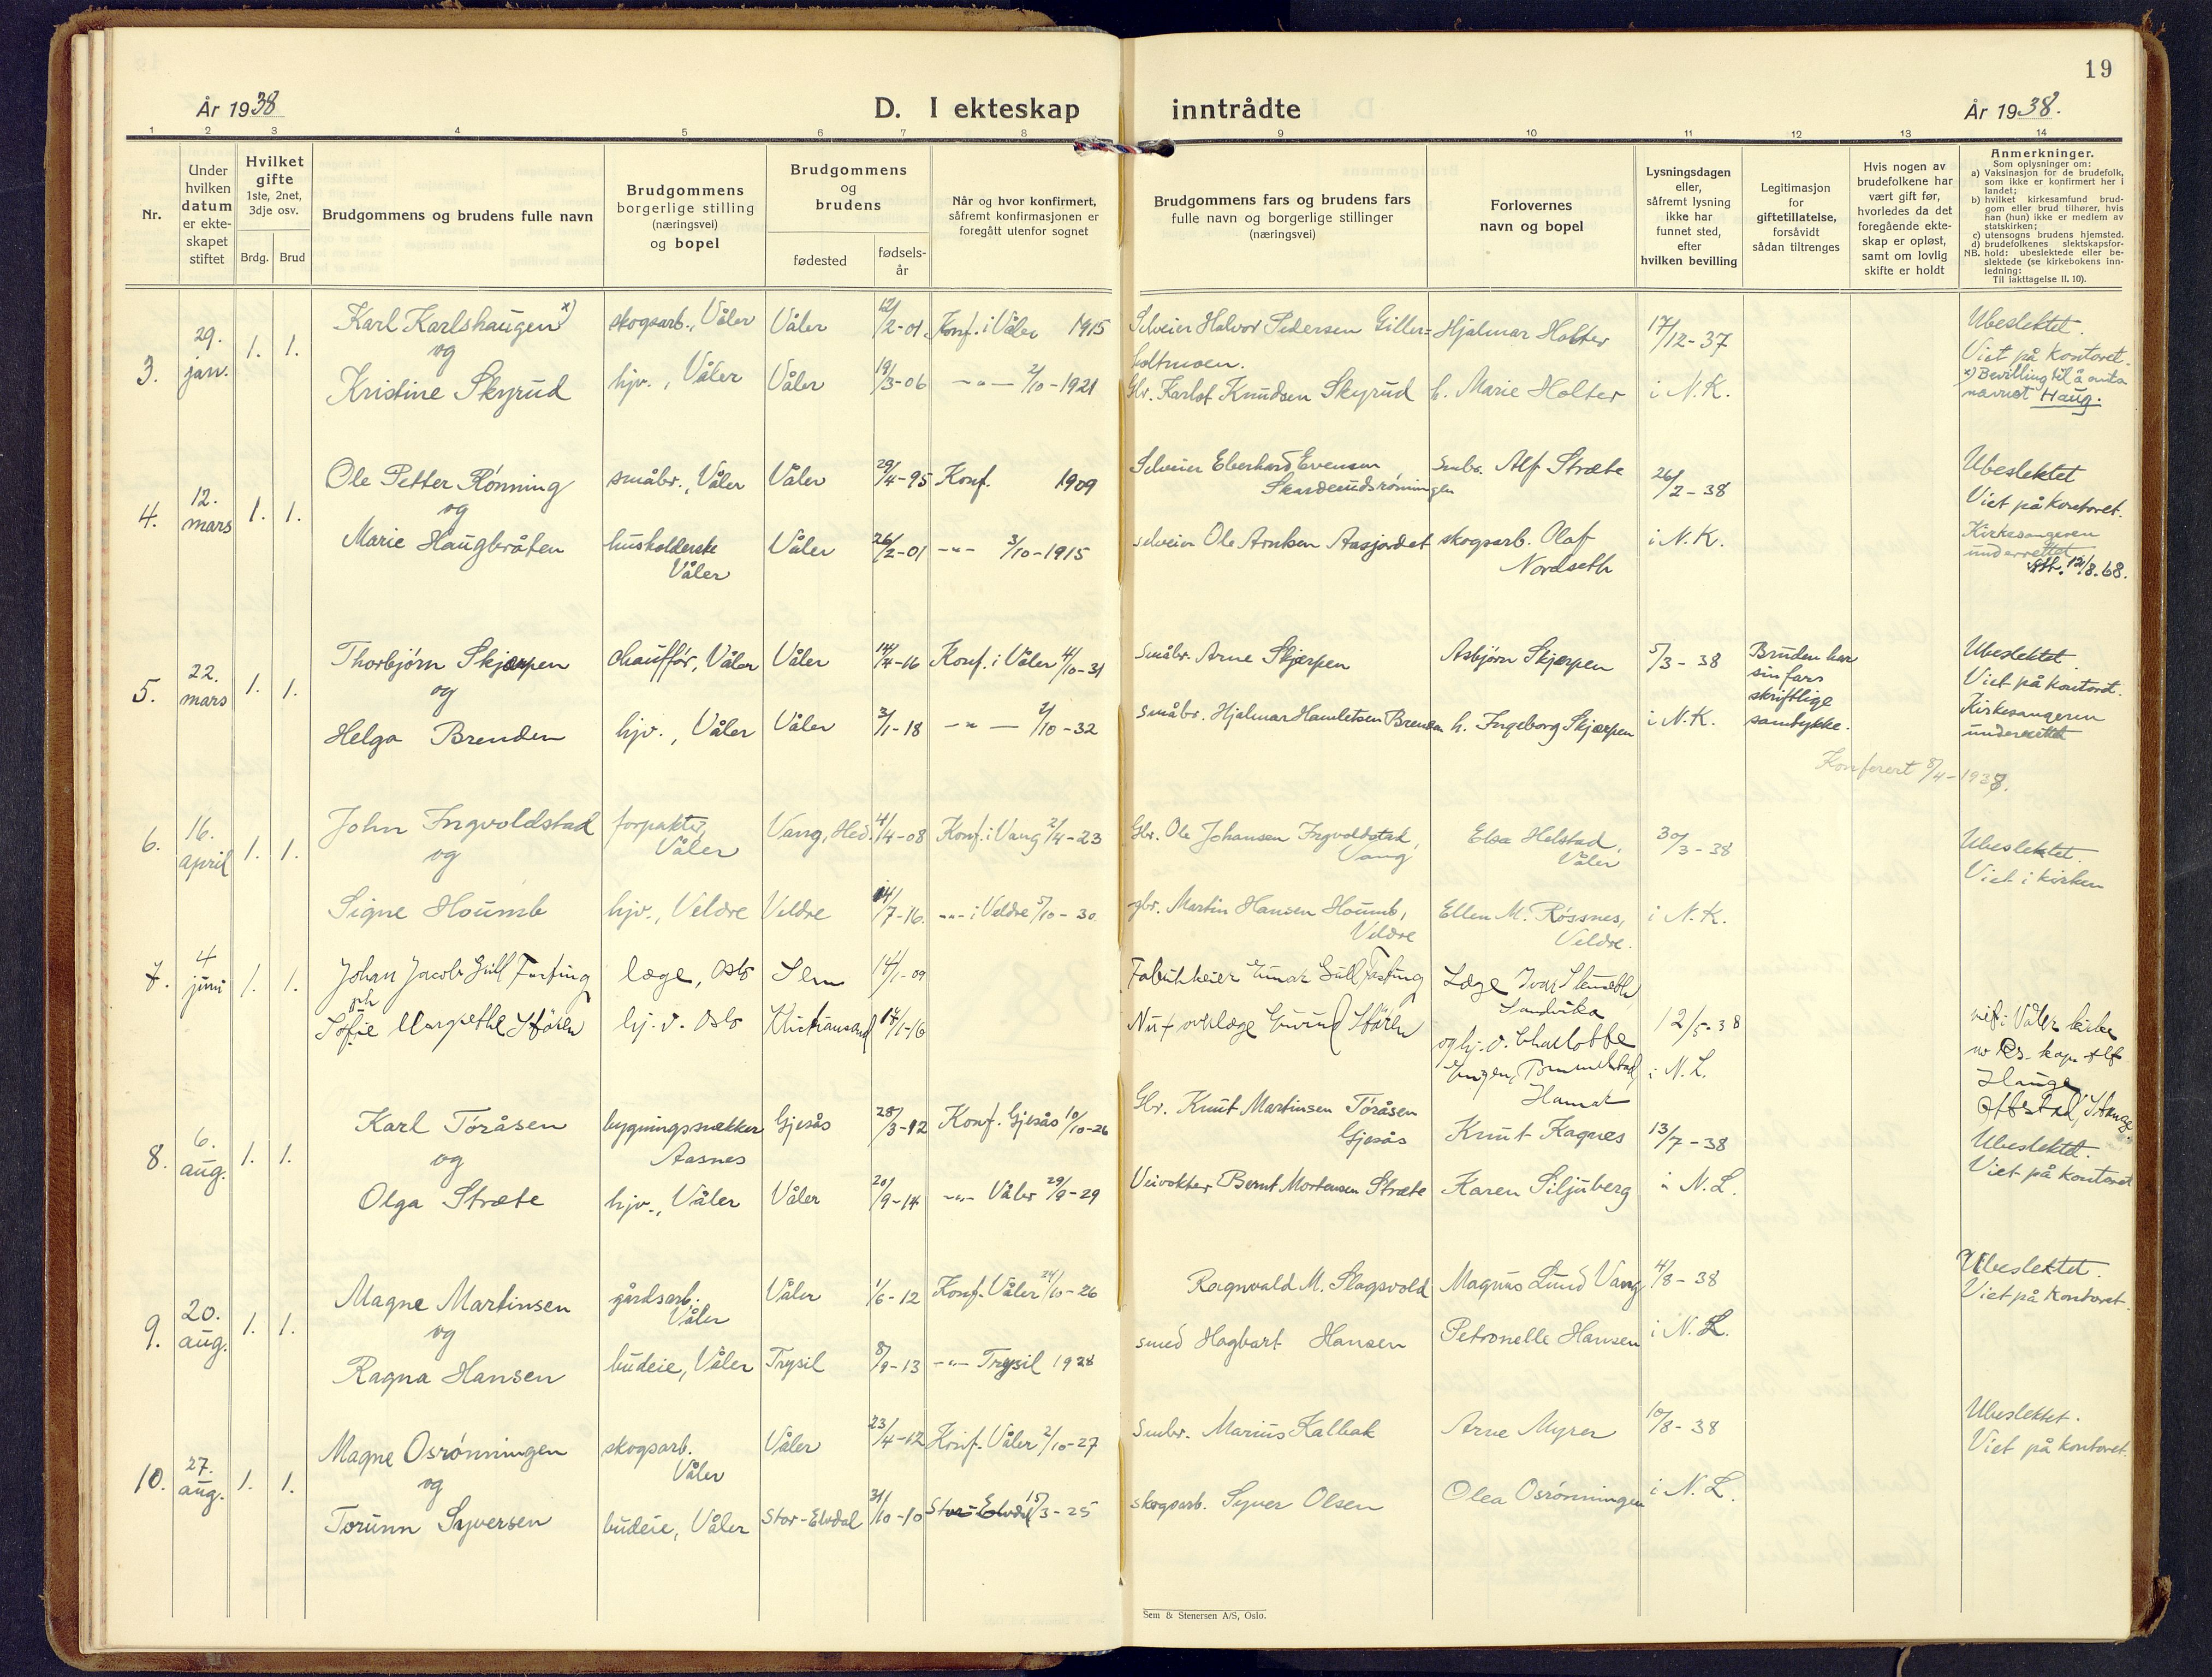 19
År 1938
D. I ekteskap inntrådte
År 1938.
1 2 3 4 5 6 7 8 9 10 11 12 13 14
Nr.
Under hvilken datum er ekteskapet stiftet
Hvilket gifte 1ste, 2net, 3dje osv.
Brdg. Brud
Brudgommens og brudens fulle navn
Brudgommens borgerlige stilling (næringsvei) og bopel
Brudgommens og brudens
fødested
fødselsår
Når og hvor konfirmert, såfremt konfirmasjonen er foregått utenfor sognet
Brudgommens fars og brudens fars fulle navn og borgerlige stillinger (næringsvei)
Forlovernes navn og bopel
Lysningsdagen eller, såfremt lysning ikke har funnet sted, efter hvilken bevilling
Legitimasjon for giftetillatelse, forsåvidt sådan tiltrenges
Hvis nogen av brudefolkene har vært gift før, hvorledes da det foregående ekteskap er opløst, samt om lovlig skifte er holdt
Anmerkninger.
Som oplysninger om:
a) Vaksinasjon for de brudefolk, som ikke er konfirmert her i landet;
b) hvilket kirkesamfund brudgom eller brud tilhører, hvis han (hun) ikke er medlem av statskirken;
c) utensogns brudens hjemsted.
d) brudefolkenes slektskapsforhold: ubeslektede eller beslektede (se kirkebokens innledning:
NB. Til iakttagelse II. 10).
3. 29. jan. 1. 1.
Karl Karlshaugen x) skogsarb., Våler Våler 12/2-01 Konf. i Våler 1915 Selveier Halvor Pedersen Hjalmar Holter 17/12-37 Ubeslektet.
og
Viet på kontoret.
Kristine Skyrud hjv., Våler Våler 19/3-06 -"- 2/10-1921 Gbr. Karlot Knudsen Skyrud h. Marie Holter i N.K. x) Bevilling til å anta navnet Haug.
4. 12. mars 1. 1.
Ole Petter Rønning småbr., Våler Våler 29/4-95 Konf. 1909 Selveier Eberhard Evensen Skarderudsrønningen Smbr. Alf Stræte 26/2-38 Ubeslektet
og
Viet på kontoret.
Marie Haugbråten husholderske Våler Våler 26/2-01 -"- 3/10-1915 selveier Ole Arntsen skogsarb. Olaf Nordseth i N.K. Kirkesangeren underrettet
12/8.68.
5. 22. mars 1. 1.
Thorbjørn Skjærpen chauffør, Våler Våler 14/4-16 Konf. i Våler 4/10-31 Småbr. Arne Skjærpen Asbjørn Skjærpen 5/3-38 Bruden har sin fars skriftlige samtykke. Ubeslektet.
og
Viet på kontoret.
Helga Brenden hjv., Våler Våler 3/1-18 -"- 2/10-32 småbr. Hjalmar Hamletsen Brenden h. Ingeborg Skjærpen i N.K. Kirkesangeren underrettet
Konferert 8/4-1938.
6. 16. april 1. 1.
John Ingvoldstad forpakter, Våler Vang, Hed. 4/4-08 Konf. i Vang 2/4-23 Gbr. Ole Johansen Ingvoldstad, Vang Elsa Helstad, Våler 30/3-38 Ubeslektet.
og
Viet i kirken
Signe Houmb hjv., Veldre Veldre 14/7-16. -"- i Veldre 5/10-30 gbr. Martin Hansen Houmb, Veldre Ellen M. Røssnes, Veldre. i N.K.
7. 4 juni 1. 1.
Johan Jacob Gull læge, Oslo Sem 14/1-09 Læge Ivar Sandvika
og
Sofie Margrethe Støren hj.v. Oslo Kristiansand 14/1-16 overlæge Støren og hj.v. Charlotte Engen, Hamar 12/5-38 i N.L. viet i Våler kirke av res. kap. Alf Hauge
8. 6. aug. 1. 1.
Karl Tøråsen bygningssnekker Aasnes Gjesås 28/3-12 Konf. Gjesås 10/10-26 Gbr. Knut Martinsen Tøråsen Gjesås Knut Kagnes 13/7-38 Ubeslektet.
og
Viet på kontoret
Olga Stræte hjv., Våler Våler 20/9-14 -"- Våler 29/9-29 Veivokter Bernt Mortensen Stræte Karen Siljuberg i N.L.
9. 20. aug. 1. 1.
Magne Martinsen gårdsarb. Våler Våler 1/6-12 Konf. Våler 24/10-26 Ragnvald M. Slagsvold Magnus Lund Vang 4/8-38 Ubeslektet.
og
Viet på kontoret.
Ragna Hansen budeie, Våler Trysil 8/9-13 -"- Trysil 1928 smed Hagbart Hansen Petronelle Hansen i N.L.
10. 27. aug. 1. 1.
Magne Osrønningen skogsarb. Våler Våler 23/4-12 Konf. Våler 2/10-27 Smbr. Marius Kalbak Arne Myrer 10/8-38 Ubeslektet.
og
Viet på kontoret.
Torunn Syversen budeie, Våler Stor-Elvdal 31/10-10 Stor-Elvdal 15/3-25 skogsarb. Syver Olsen Olea Osrønningen i N.L.
Sem & Stenersen A/S, Oslo.